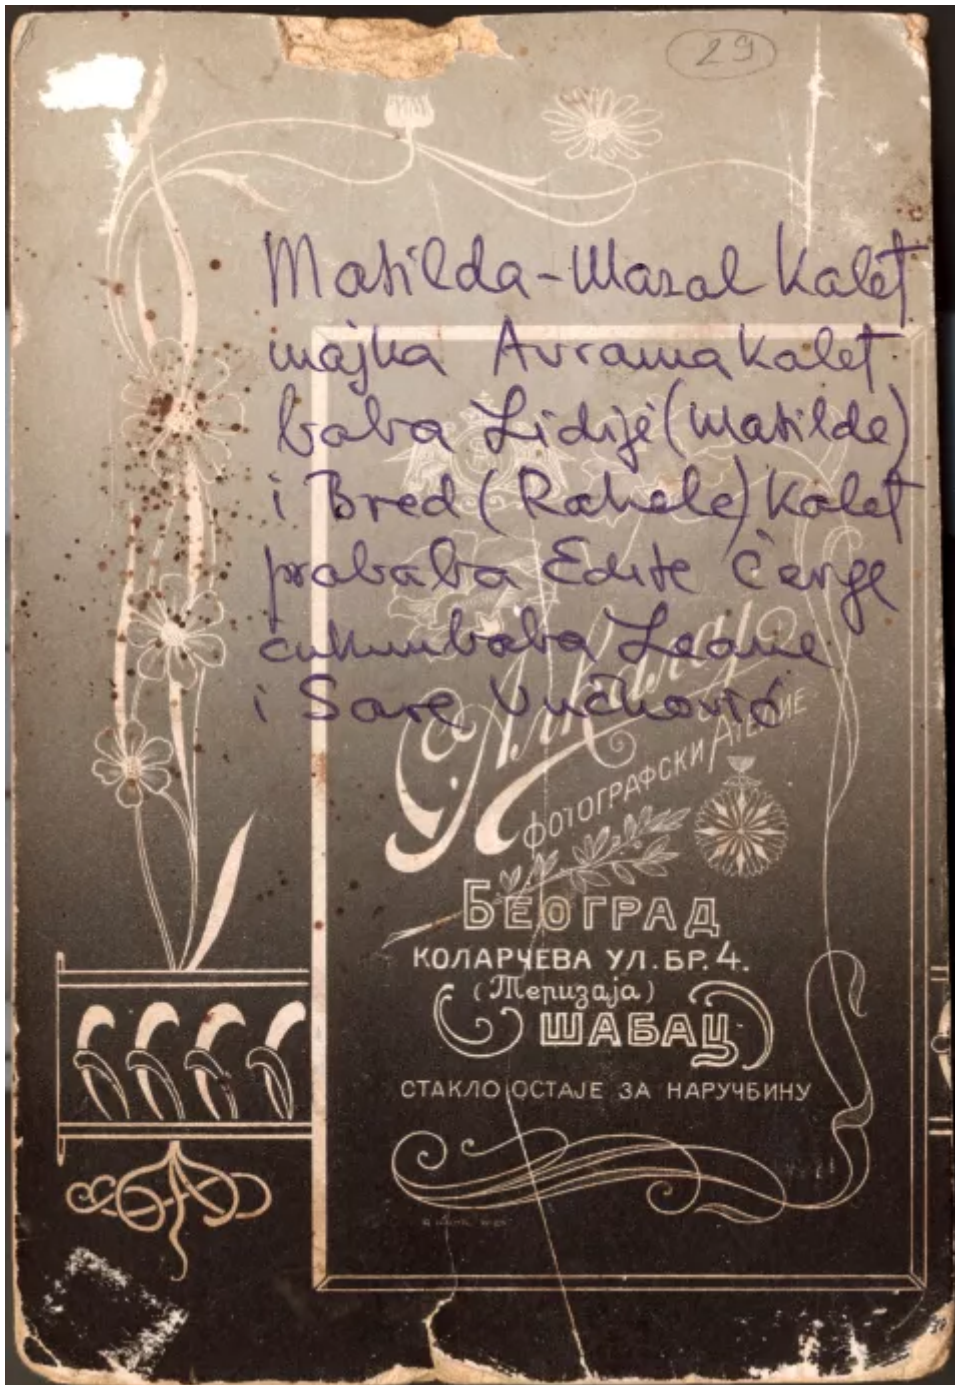 29
Matilda-Mazal Kalef
majka Avrama Kalef
baba Lidije (Matilde)
i Bred (Rahele) Kalef
prababa Edite
čukunbaba Leone
i Sare Vučković
ФОТОГРАФСКИ АТЕЛИЕ
БЕОГРАД
КОЛАРЧЕВА УЛ. БР. 4.
(Теризаја)
ШАБАЦ
СТАКЛО ОСТАЈЕ ЗА НАРУЧБИНУ